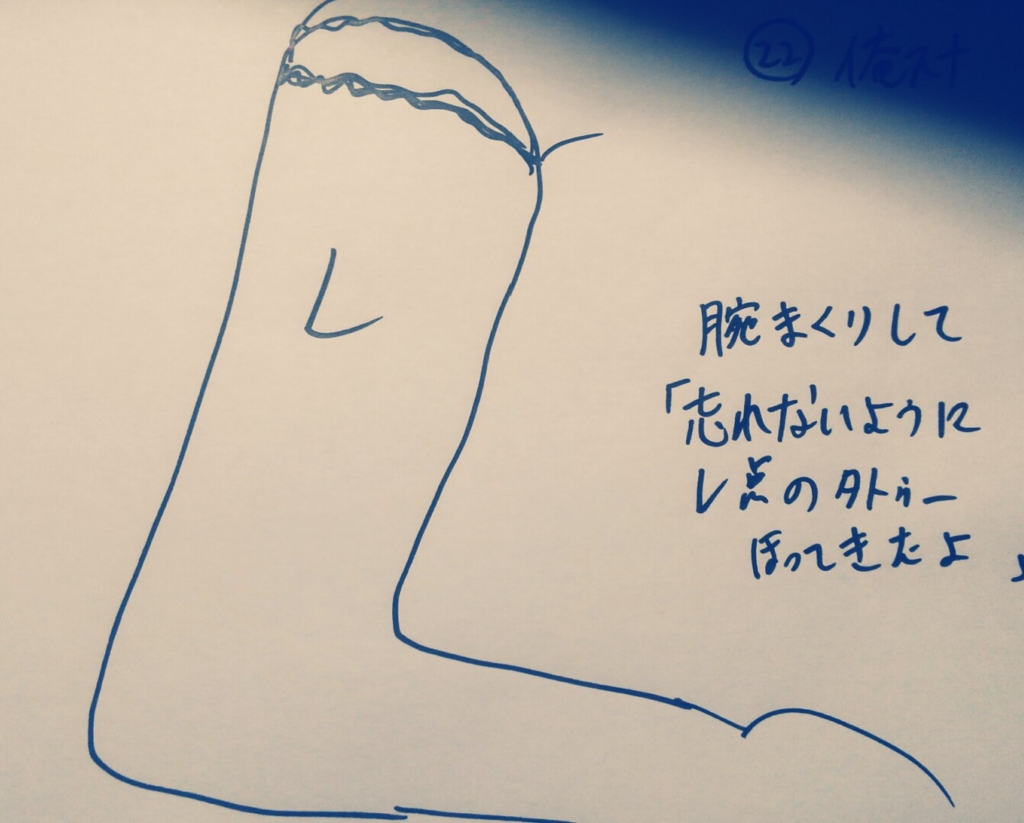 ㉒ 俺スナ
腕まくりして
「忘れないように
レ点のタトゥー
ほってきたよ」